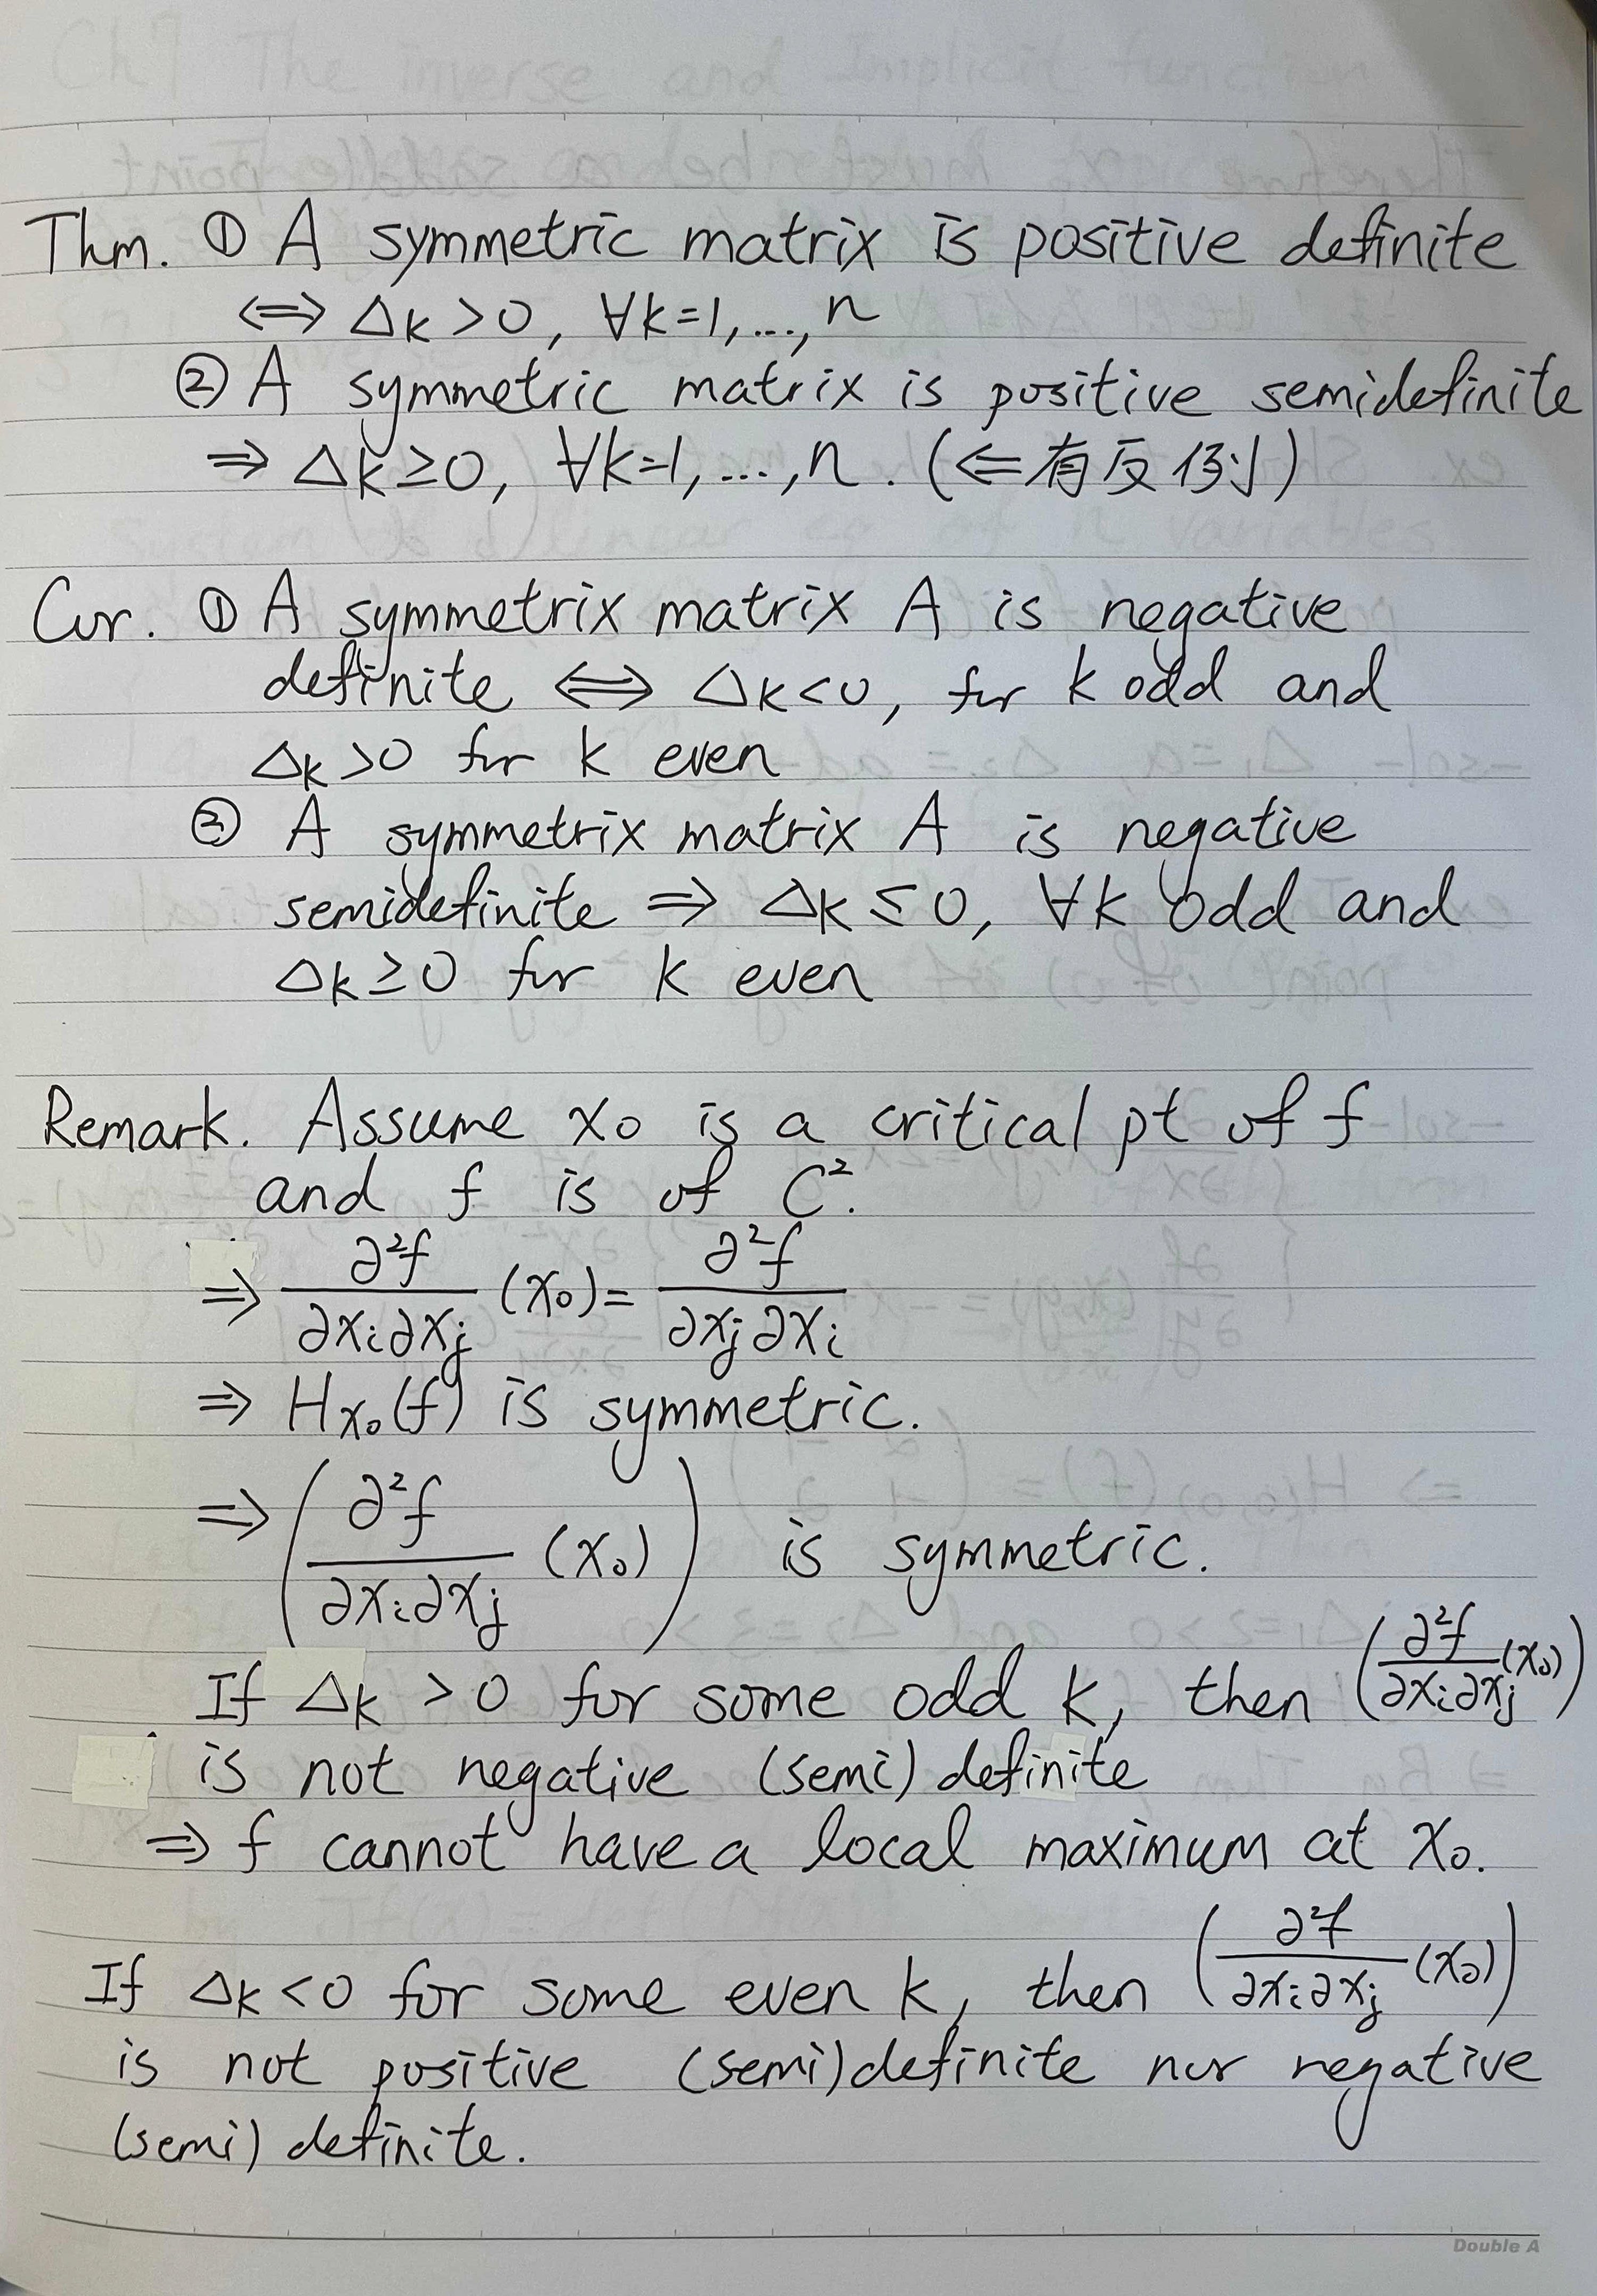 Thm. ① A symmetric matrix is positive definite
⇔ Δk > 0, ∀k=1, ..., n
② A symmetric matrix is positive semidefinite
⇒ Δk ≥ 0, ∀k=1, ..., n. (⇐有反例)
Cor. ① A symmetrix matrix A is negative
definite ⇔ Δk < 0, for k odd and
Δk > 0 for k even
② A symmetrix matrix A is negative
semidefinite ⇒ Δk ≤ 0, ∀k odd and
Δk ≥ 0 for k even
Remark. Assume x₀ is a critical pt of f
and f is of C².
⇒ ∂²f/∂xi∂xj (x₀) = ∂²f/∂xj∂xi
⇒ Hx₀(f) is symmetric.
⇒ (∂²f/∂xi∂xj (x₀)) is symmetric.
If Δk > 0 for some odd k, then (∂²f/∂xi∂xj (x₀))
is not negative (semi) definite
⇒ f cannot have a local maximum at x₀.
If Δk < 0 for some even k, then (∂²f/∂xi∂xj (x₀))
is not positive (semi) definite nor negative
(semi) definite.
Double A